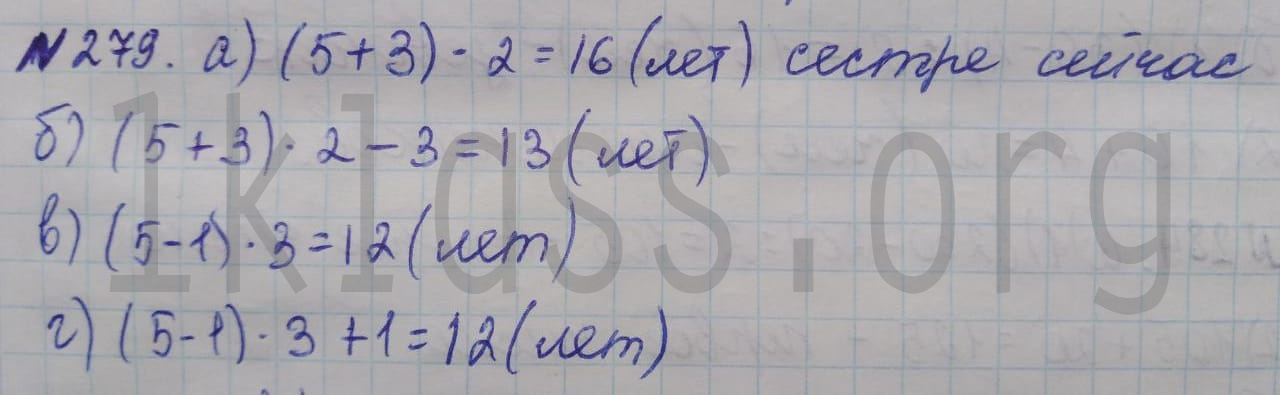 № 279. а) (5+3) · 2 = 16 (лет) сестре сейчас
б) (5+3) · 2 - 3 = 13 (лет)
в) (5-1) · 3 = 12 (лет)
г) (5-1) · 3 + 1 = 12 (лет)
1klass.org